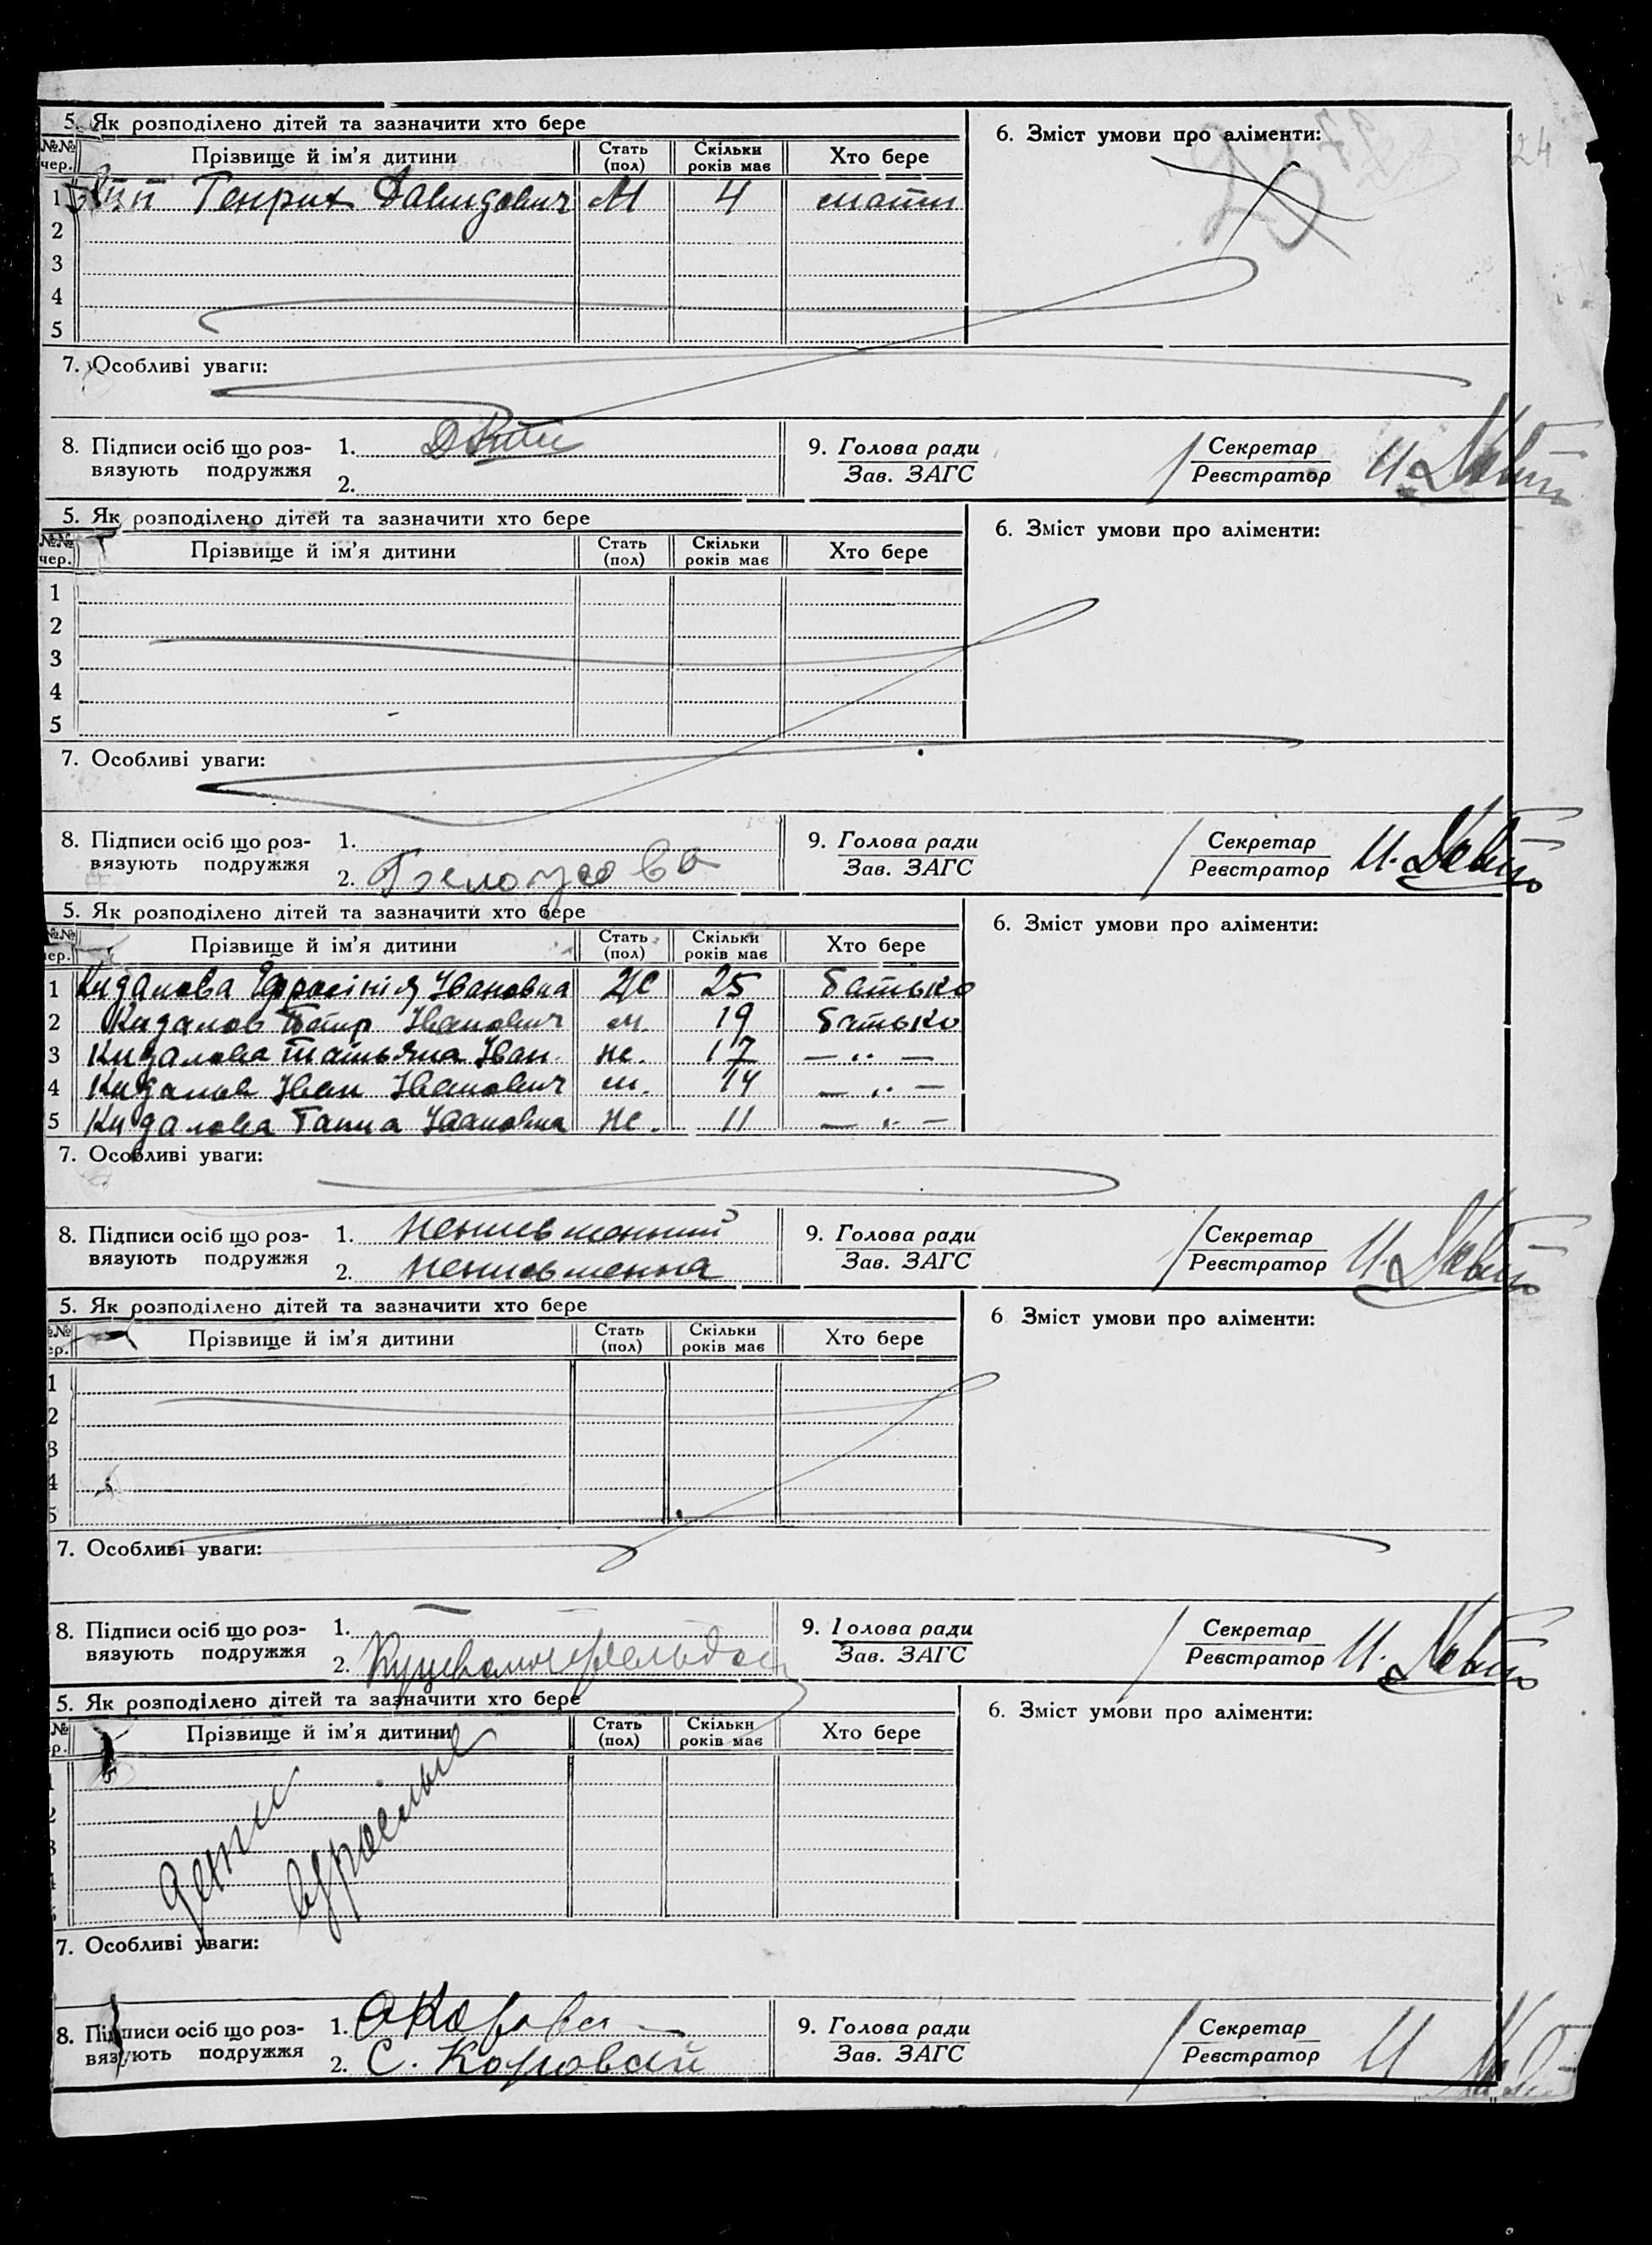 24
5. Як розподілено дітей та зазначити хто бере
6. Зміст умови про аліменти:
№№ чер. Прізвище й ім'я дитини Стать (пол) Скільки років має Хто бере
1 Генрих Давидович М 4 мати
2
3
4
5
7. Особливі уваги:
8. Підписи осіб що роз-
вязують подружжя
1.
2.
9. Голова ради
Зав. ЗАГС
Секретар
Реєстратор
5. Як розподілено дітей та зазначити хто бере
6. Зміст умови про аліменти:
№№ чер. Прізвище й ім'я дитини Стать (пол) Скільки років має Хто бере
1
2
3
4
5
7. Особливі уваги:
8. Підписи осіб що роз-
вязують подружжя
1.
2. Белоусова
9. Голова ради
Зав. ЗАГС
Секретар
Реєстратор
5. Як розподілено дітей та зазначити хто бере
6. Зміст умови про аліменти:
№№ чер. Прізвище й ім'я дитини Стать (пол) Скільки років має Хто бере
1 Кидалова Ефросінія Івановна ж 25 батько
2 Кидалов Петр Іванович м. 19 батько
3 Кидалова Татьяна Іван. ж. 17 — „ —
4 Кидалов Іван Іванович м. 14 — „ —
5 Кидалова Ганна Івановна ж. 11 — „ —
7. Особливі уваги:
8. Підписи осіб що роз-
вязують подружжя
1. неписьменний
2. неписьменна
9. Голова ради
Зав. ЗАГС
Секретар
Реєстратор
5. Як розподілено дітей та зазначити хто бере
6 Зміст умови про аліменти:
Прізвище й ім'я дитини Стать (пол) Скільки років має Хто бере
1
2
3
4
5
7. Особливі уваги:
8. Підписи осіб що роз-
вязують подружжя
1. —
2.
9. Голова ради
Зав. ЗАГС
Секретар
Реєстратор
5. Як розподілено дітей та зазначити хто бере
6. Зміст умови про аліменти:
Прізвище й ім'я дитини Стать (пол) Скільки років має Хто бере
дети
взрослые
7. Особливі уваги:
8. Підписи осіб що роз-
вязують подружжя
1.
2. С. Коровай
9. Голова ради
Зав. ЗАГС
Секретар
Реєстратор